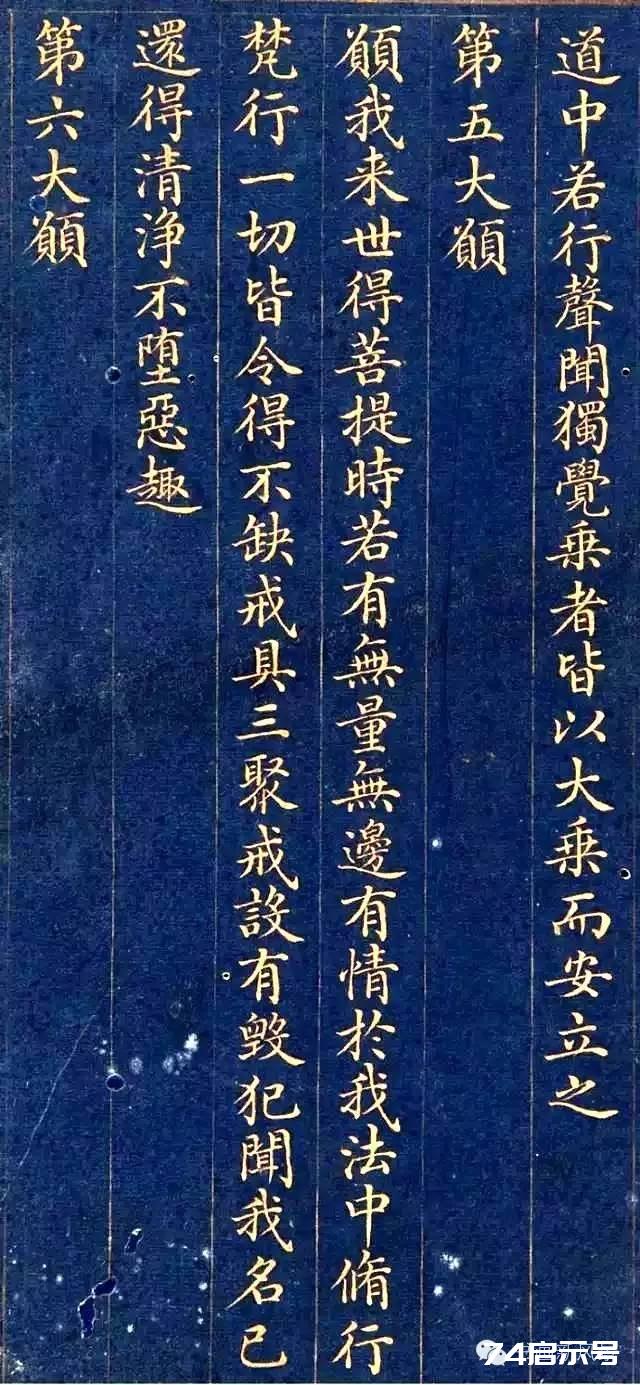 道中若行聲聞獨覺乗者皆以大乗而安立之
第五大願
願我来世得菩提時若有無量無邊有情於我法中脩行
梵行一切皆令得不缺戒具三聚戒設有毀犯聞我名已
還得清浄不墮惡趣
第六大願
74启示号